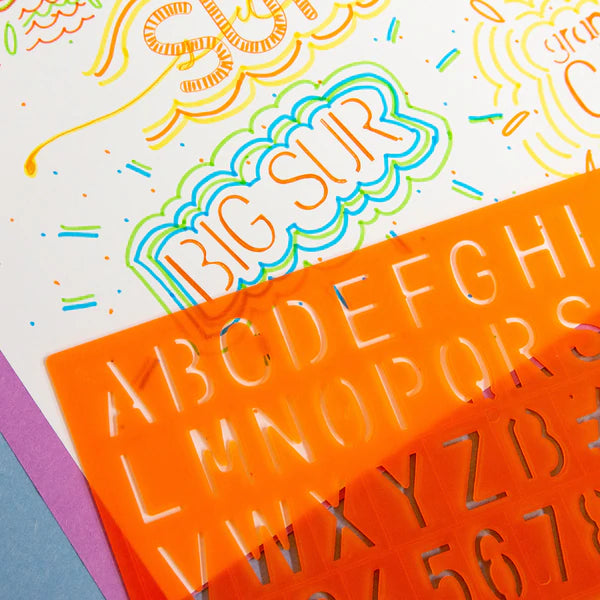 BIG SUR
gran
ABCDEFGHI
LMNOPQRS
VWXYZß
5678